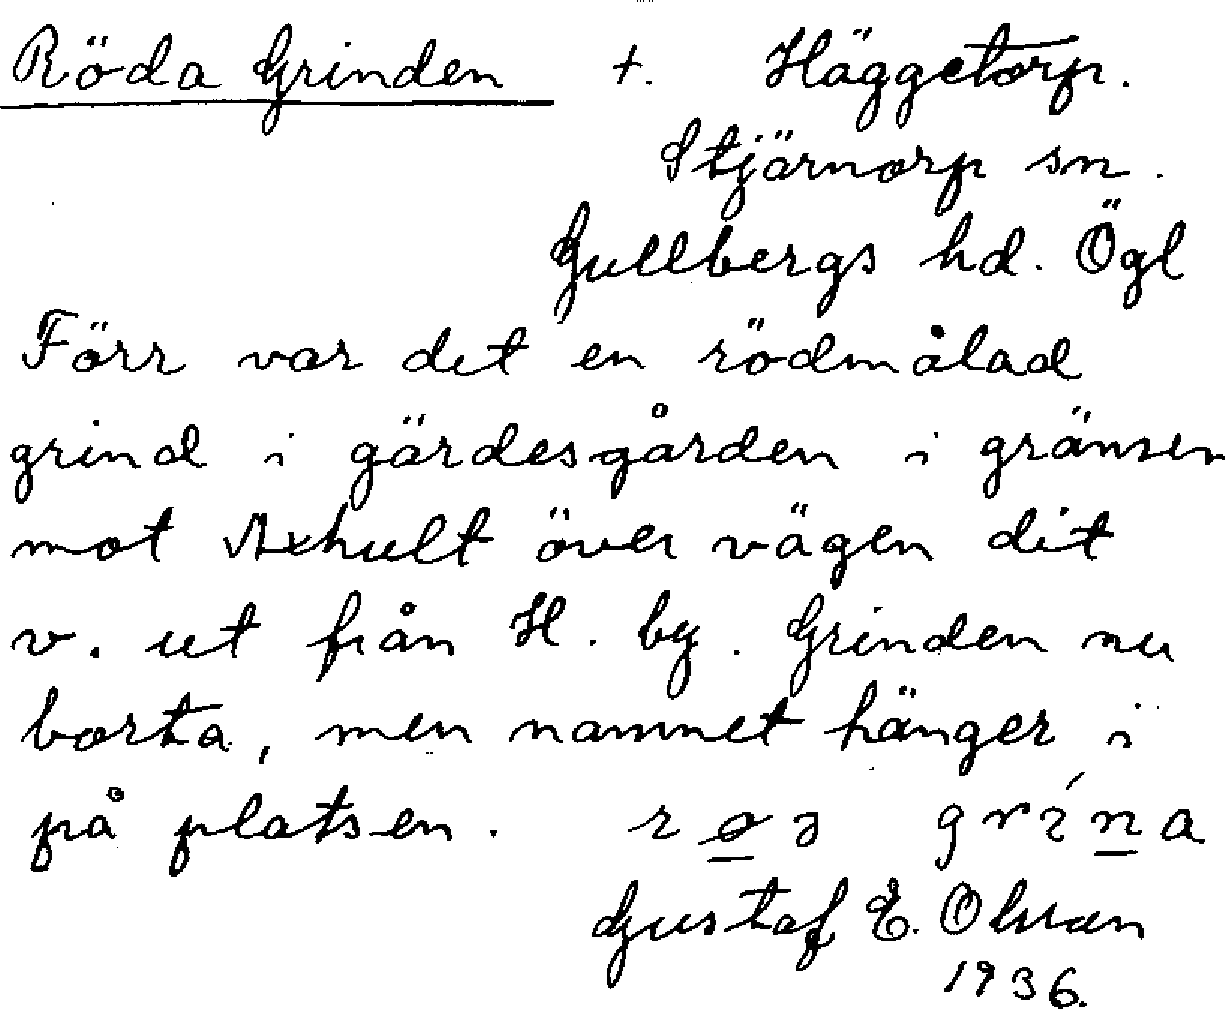 Röda Grinden +. Häggetorp.
Stjärnorp sn.
Gullbergs hd. Ögl
Förr var det en rödmålad
grind i gärdesgården i gränsen
mot Axhult över vägen dit
v. ut från H. by. Grinden nu
borta, men namnet hänger i
på platsen.
Gustaf E. Olsson
1936.